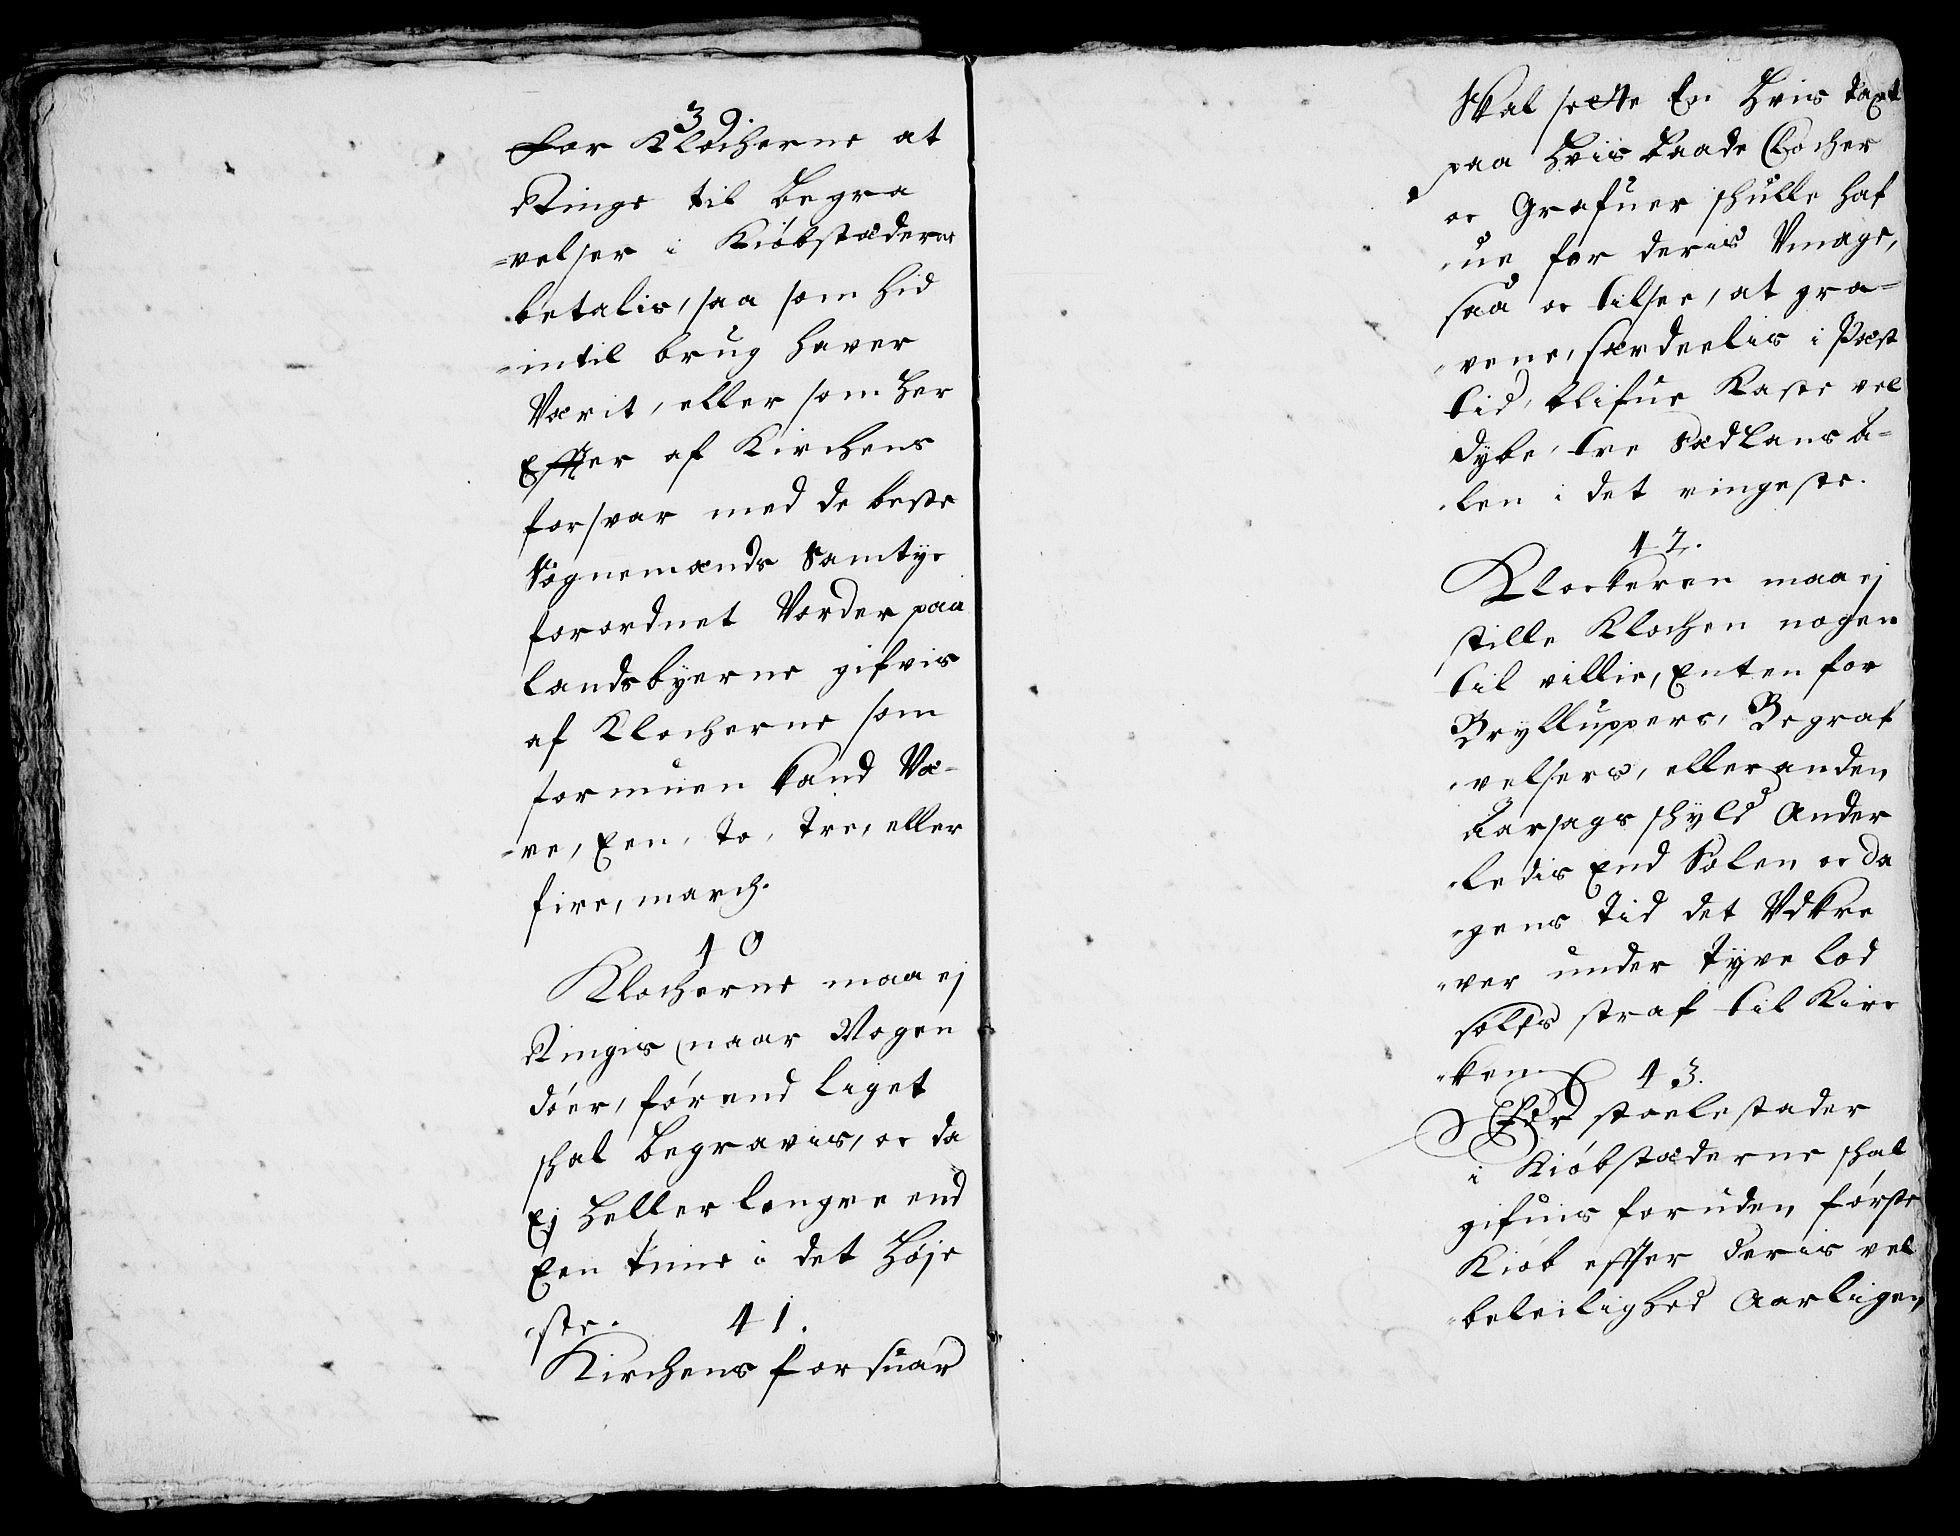 39.
For Klocherne at
Ringe til begra
=velser i Kiøbstæderne
betalis, saa som hid
=intil brug haver
Værit, eller som her
Effter af Kirchens
forsvar med de beste
Sognemænds Samtyc
forordnet Vorder paa
landsbyerne gifvis
af Klocherne som
formuen kand Væ-
=re, Een, to, tre, eller
fire, march.
40
Klocherne maa ej
Ringis naar Nogen
döer, förend liget
shal begravis, oc da
Ej heller længre end
Een time i det höje
ste.
41.
Kirchens forsuar
skal sætte En Hvis taxt
paa hvis baade Clocher
oc Grafuer shulle haf
ue for deris Vmage,
saa oc tilsee, at gra=
vene, særdeelis i Pæst
tid, blifue Kaste vel
dybe, tre Sædlans a-
len i det ringeste.
42.
Klockeren maa ej
stille Klochen nogen
til villie, Enten for
Bryllupper, Begraf
velsers, eller anden
aarsags shyld Ander
ledis End Solen oc da
gens tid det Udkre
ver under tyve lod
sølfs straf til Kirc
ken
43.
For stoelestader
i Kiöbstæderne shal
gifuis foruden förste
Kiöb effter deris vel
beleilighed Aarligen